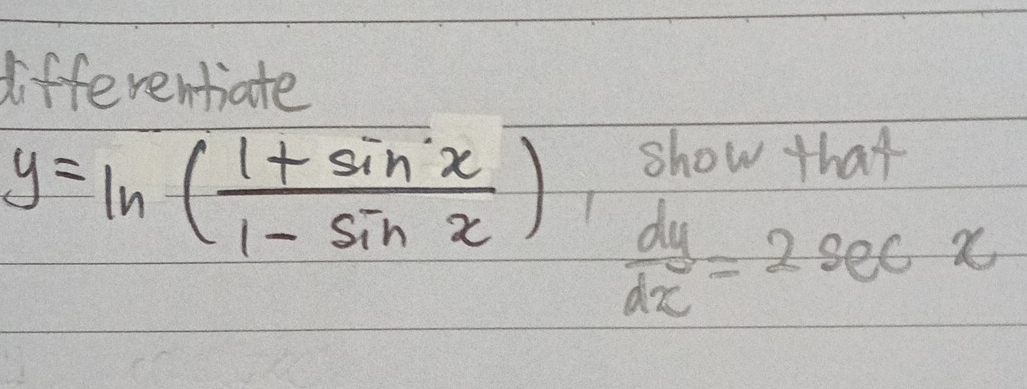 differentiate
y = ln ( (1 + sin x) / (1 - sin x) ), show that
dy/dx = 2 sec x